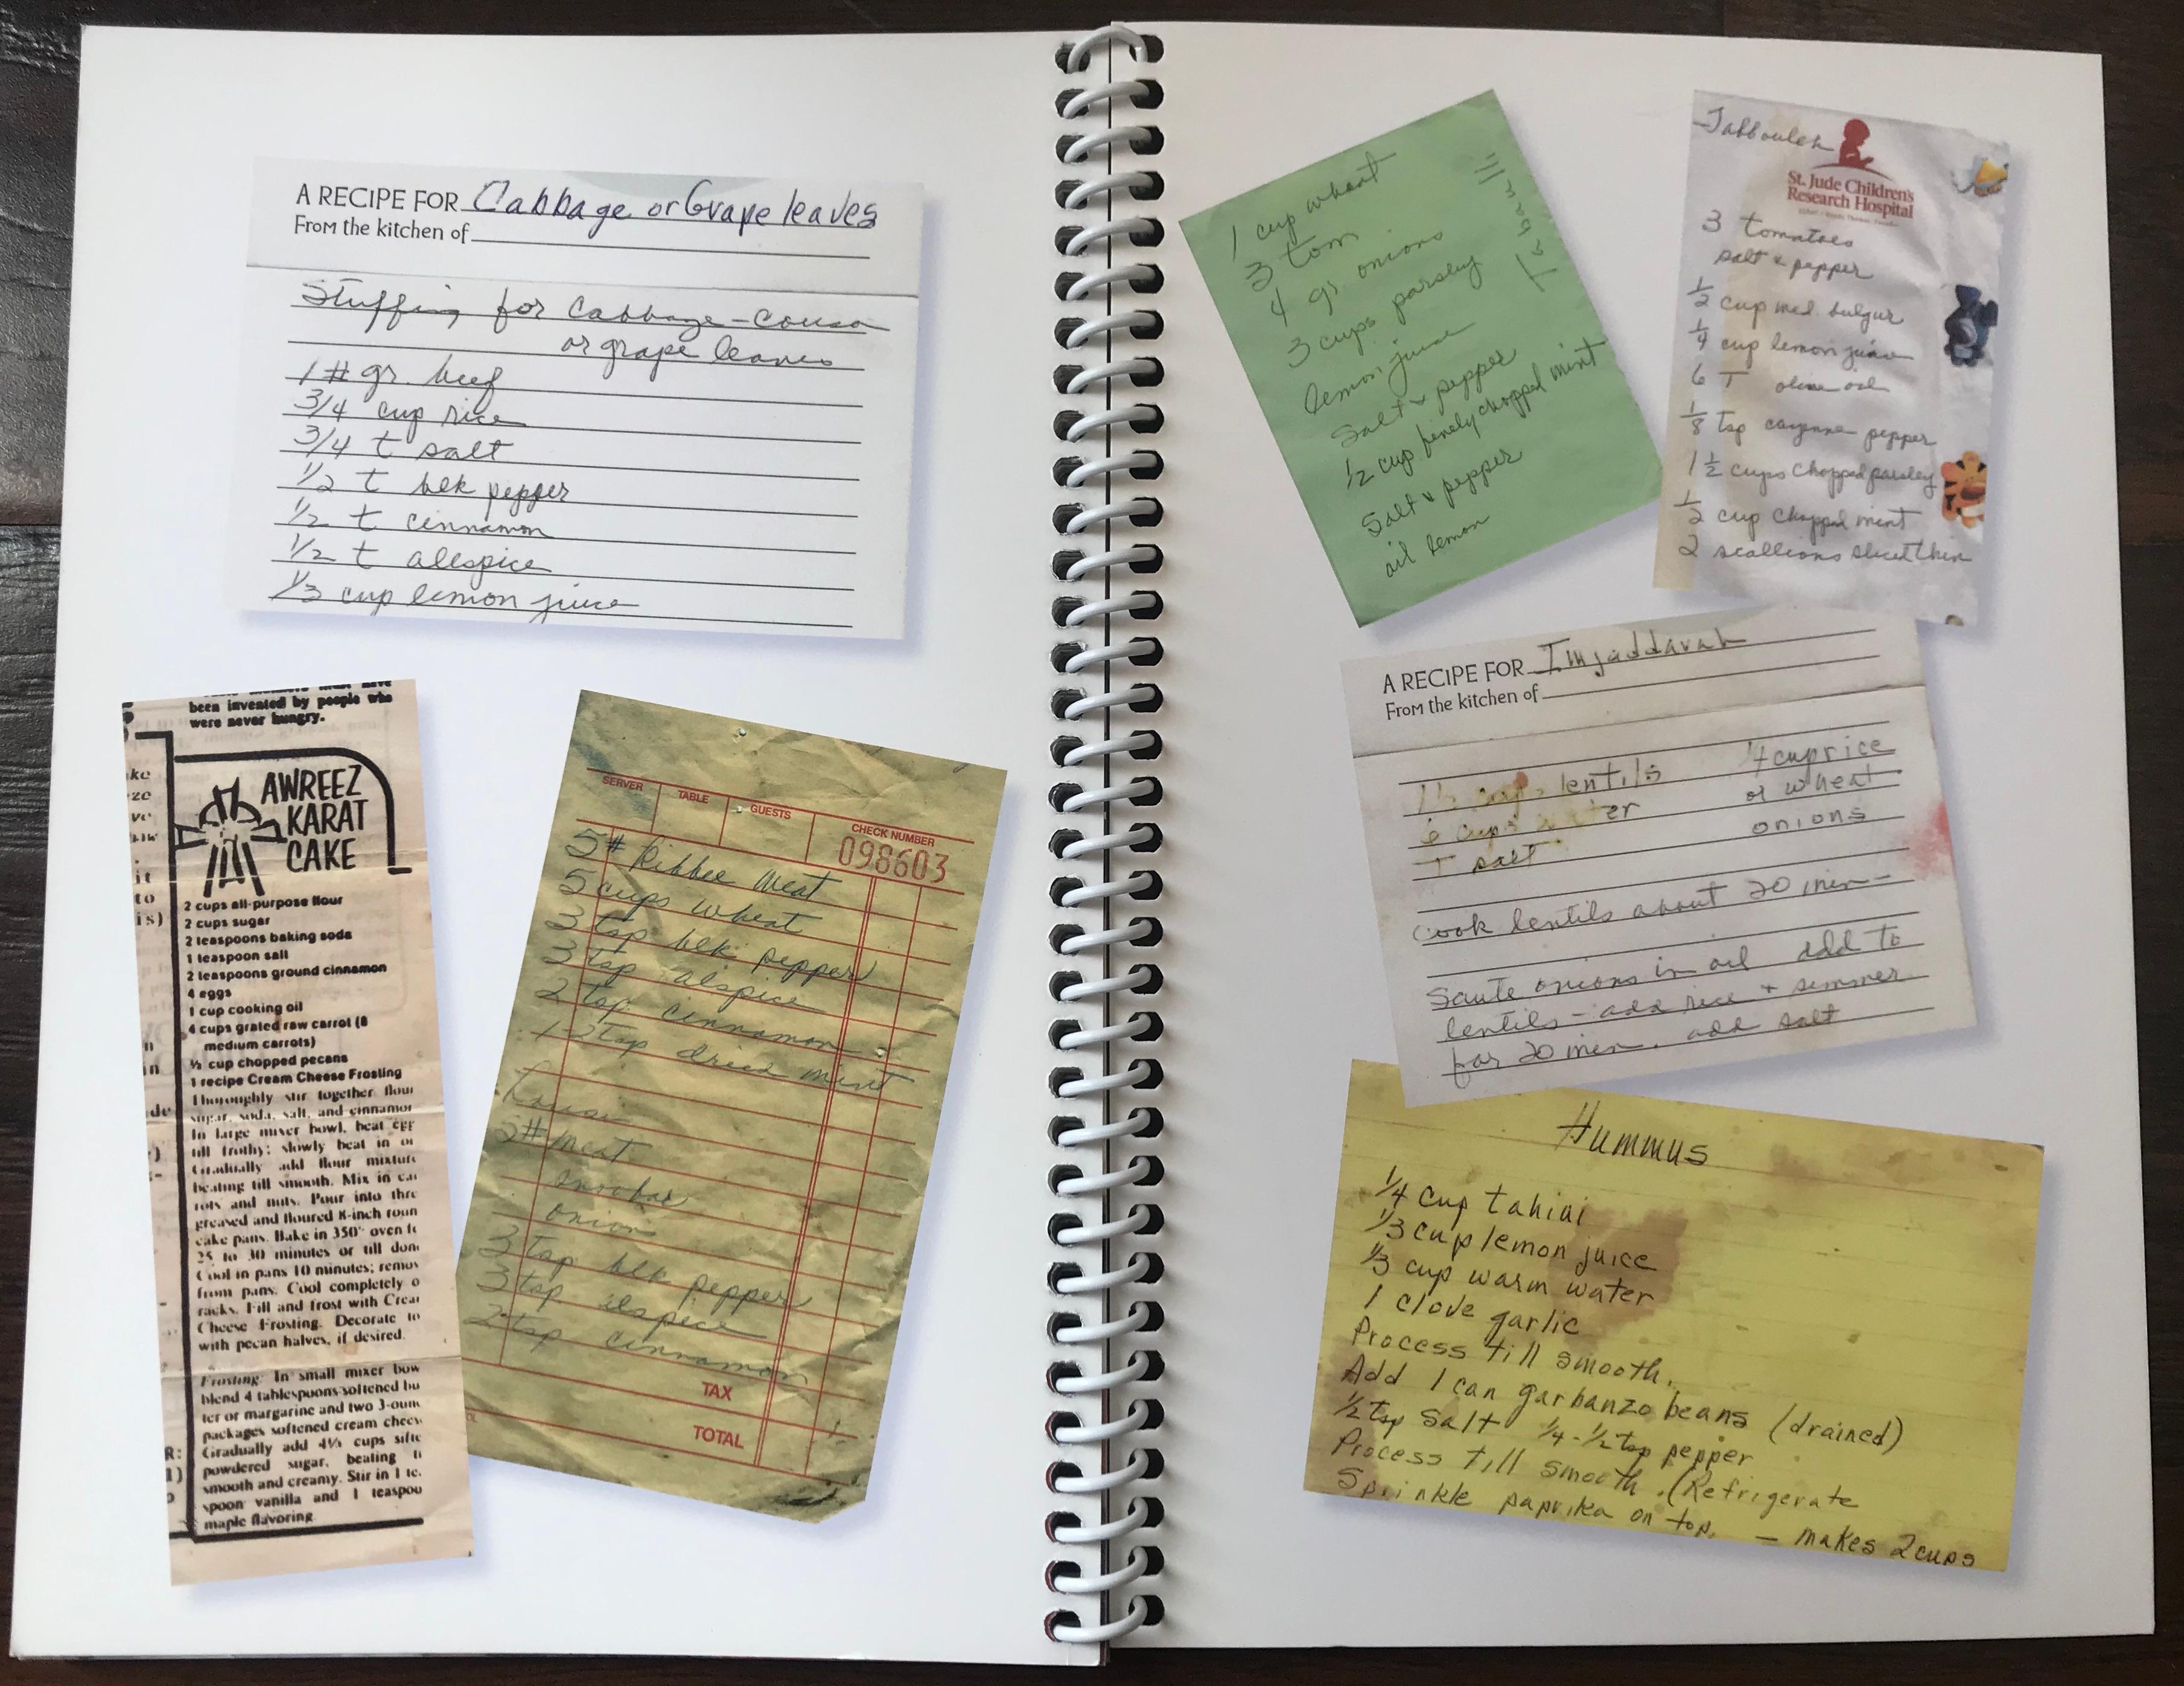 A RECIPE FOR Cabbage or Grape leaves
From the kitchen of
Stuffing for Cabbage-Cousa
or grape leaves
1 # gr. beef
3/4 cup rice
3/4 t salt
1/2 t blk pepper
1/2 t cinnamon
1/2 t allspice
1/3 cup lemon juice
been invented by people who
were never hungry.
AWREEZ
KARAT
CAKE
2 cups all-purpose flour
2 cups sugar
2 teaspoons baking soda
1 teaspoon salt
2 teaspoons ground cinnamon
4 eggs
1 cup cooking oil
4 cups grated raw carrot (8
medium carrots)
½ cup chopped pecans
1 recipe Cream Cheese Frosting
Thoroughly stir together flour
sugar, soda, salt, and cinnamon
In large mixer bowl, beat egg
till frothy; slowly beat in oi
Gradually add flour mixture
beating till smooth. Mix in car
rots and nuts. Pour into thre
greased and floured 8-inch roun
cake pans. Bake in 350° oven fo
25 to 30 minutes or till done
Cool in pans 10 minutes; remov
from pans. Cool completely o
racks. Fill and frost with Crear
Cheese Frosting. Decorate to
with pecan halves, if desired.
Frosting: In small mixer bow
blend 4 tablespoons softened bu
ter or margarine and two 3-oun
packages softened cream chees
Gradually add 4½ cups sifte
powdered sugar, beating ti
smooth and creamy. Stir in 1 te
spoon vanilla and 1 teaspoo
maple flavoring.
SERVER TABLE GUESTS CHECK NUMBER
098603
5# Kibbee Meat
5 cups wheat
3 tsp blk pepper
3 tsp alspice
2 tsp cinnamon
1-2 tsp dried mint
2# meat
onion
3 tsp blk pepper
3 tsp alspice
2 tsp cinnamon
TAX
TOTAL
1 cup wheat
3 tom
4 gr. onions
3 cups parsley
lemon juice
Salt & pepper
1/2 cup finely chopped mint
Salt & pepper
oil lemon
Tabbouleh
St. Jude Children's
Research Hospital
3 tomatoes
salt & pepper
1/2 cup med. bulgur
1/4 cup lemon juice
6 T olive oil
1/8 tsp cayenne pepper
1 1/2 cups Chopped parsley
1/2 cup Chopped mint
2 scallions sliced thin
A RECIPE FOR Imjaddarah
From the kitchen of
1½ cups lentils
6 cups water
T salt
1/4 cup rice
or wheat
onions
Cook lentils about 20 min-
Saute onions in oil add to
lentils - add rice + simmer
for 20 min. add salt
Hummus
1/4 cup tahini
1/3 cup lemon juice
1/3 cup warm water
1 clove garlic
Process till smooth.
Add 1 can garbanzo beans (drained)
1/2 tsp salt 1/4-1/2 tsp pepper
Process till smooth. (Refrigerate
Sprinkle paprika on top. — makes 2 cups